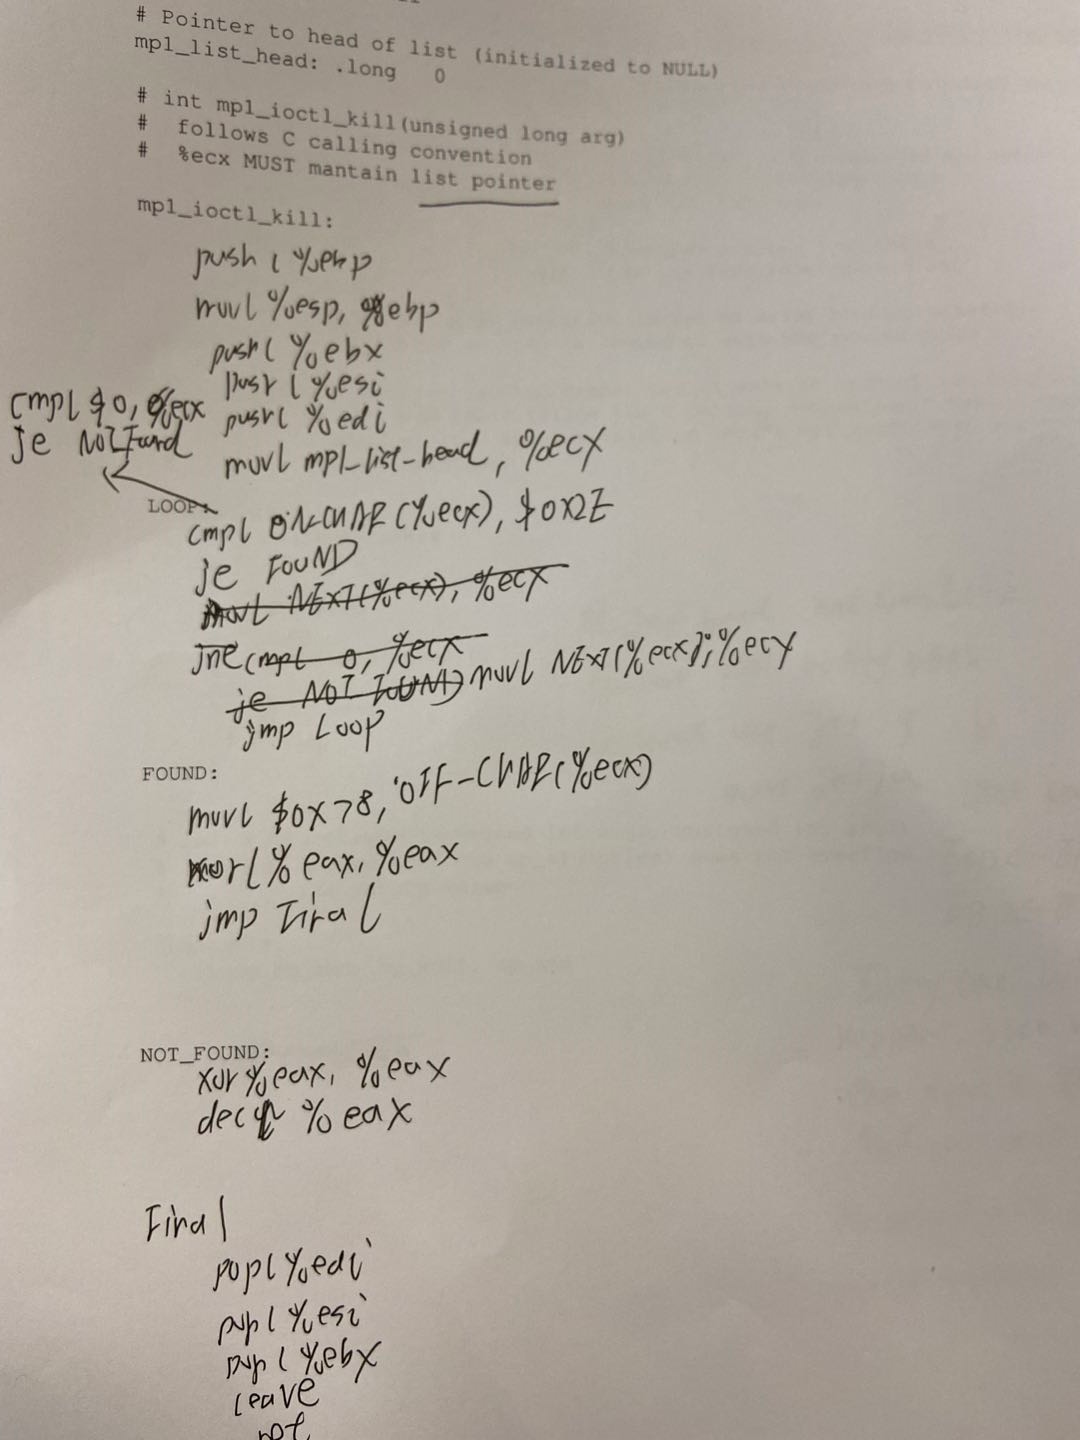 # Pointer to head of list (initialized to NULL)
mp1_list_head: .long 0
# int mp1_ioctl_kill(unsigned long arg)
# follows C calling convention
# %ecx MUST mantain list pointer
mp1_ioctl_kill:
pushl %ebp
movl %esp, %ebp
pushl %ebx
pushl %esi
cmpl $0, %ecx
pushl %edi
je Not Found
movl mp1_list_head, %ecx
LOOP:
cmpl ON_CHAR(%ecx), $0x2E
je FOUND
movl NEXT(%ecx), %ecx
jne cmpl 0, %ecx
je NOT FOUND movl NEXT(%ecx), %ecx
jmp Loop
FOUND:
movl $0x78, OFF_CHAR(%ecx)
xorl %eax, %eax
jmp Final
NOT_FOUND:
xor %eax, %eax
dec %eax
Final
popl %edi
popl %esi
popl %ebx
leave
ret